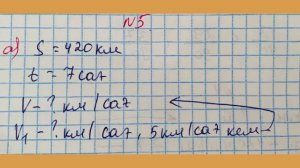 №5.
а) S = 420 км
t = 7 саг
V - ? км/саг
V₁ - ? км/саг, 5 км/саг кем